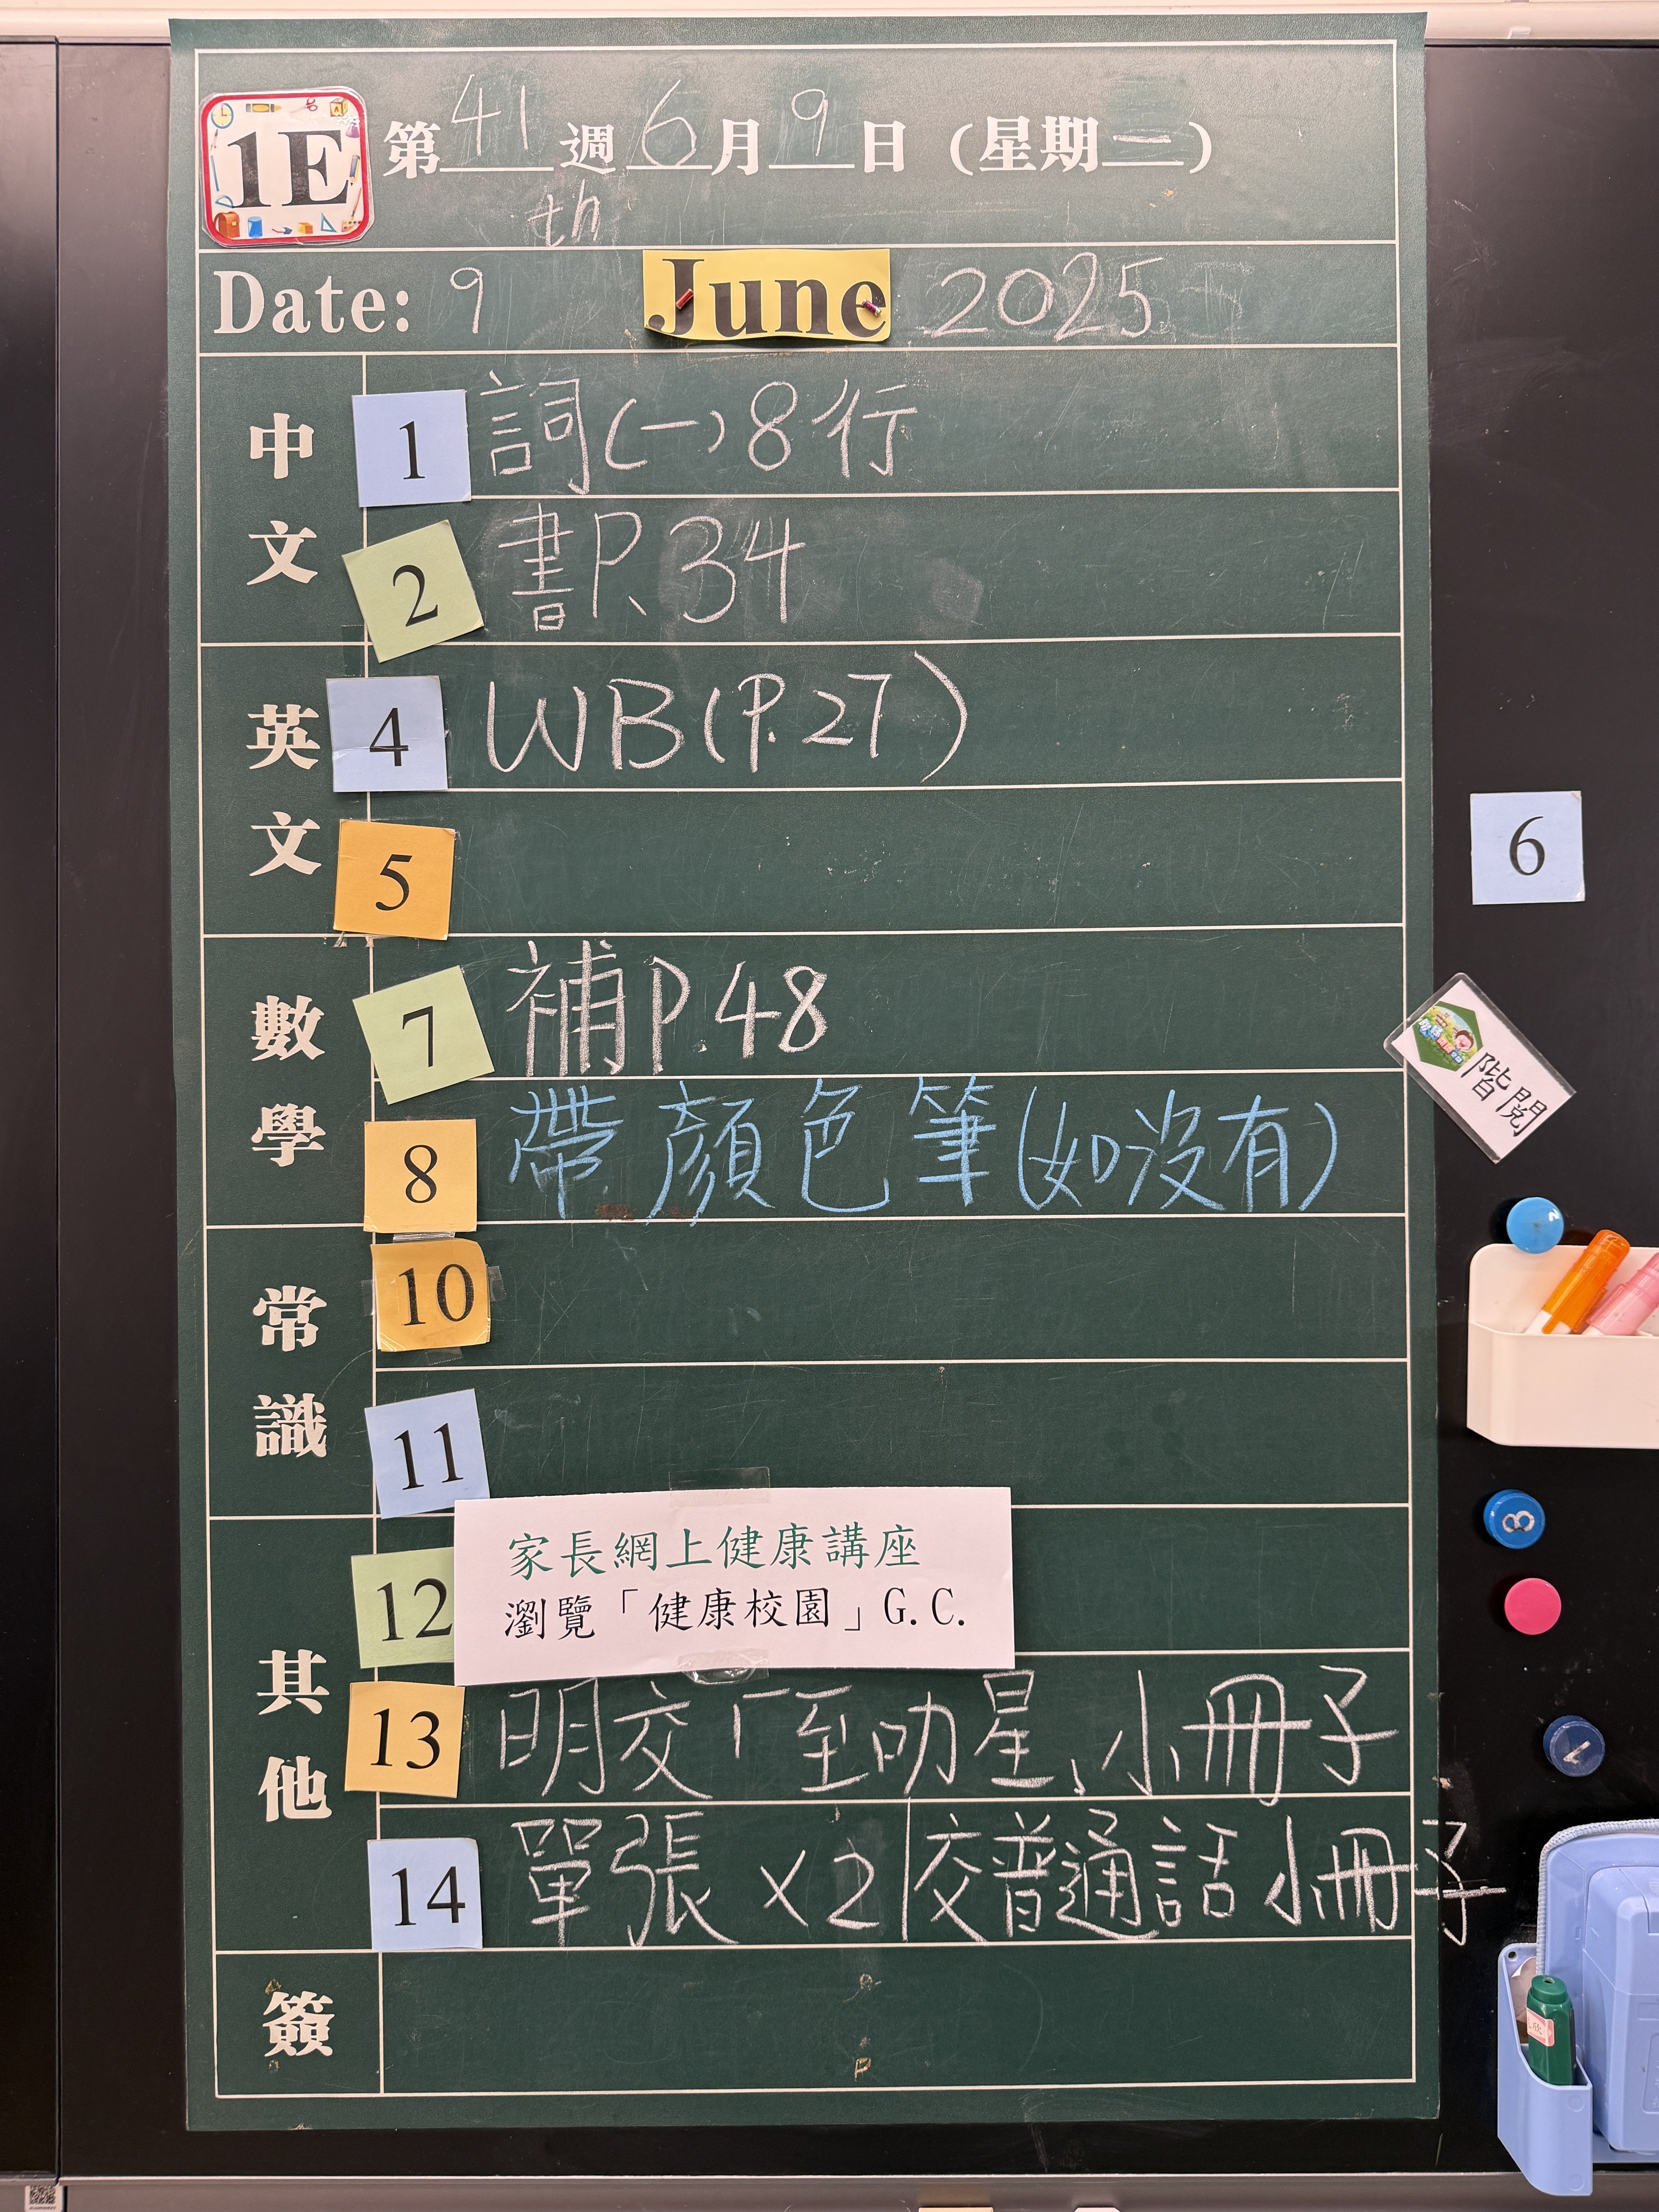 1E
第41週6月9日（星期一）
th
Date: 9 June 2025
中文
1 詞(一)8行
2 書P.34
英文
4 WB(P.27)
5
6
數學
7 補P.48
階閱
8 帶顏色筆(如沒有)
常識
10
11
其他
12 家長網上健康講座
瀏覽「健康校園」G.C.
13 明交「至叻星」小冊子
14 單張×2|交普通話小冊子
簽
8
1